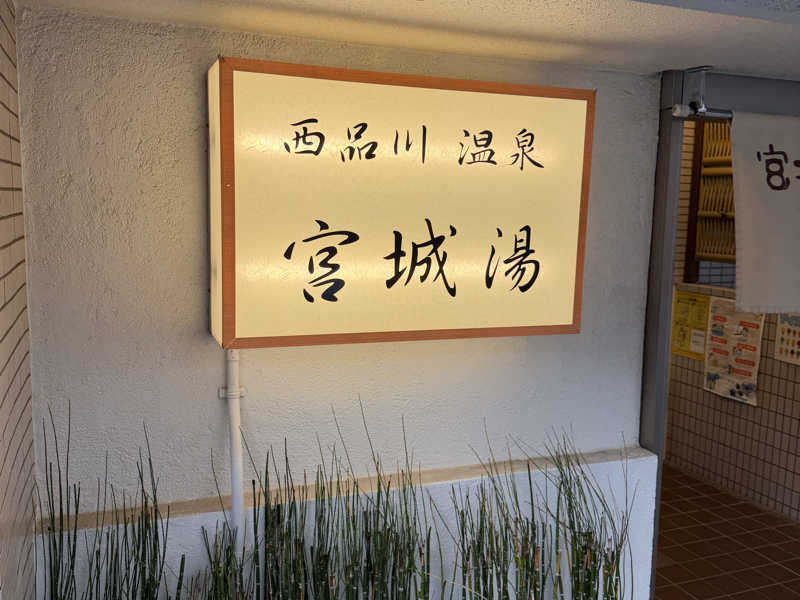 西品川 温泉
宮城湯
宮